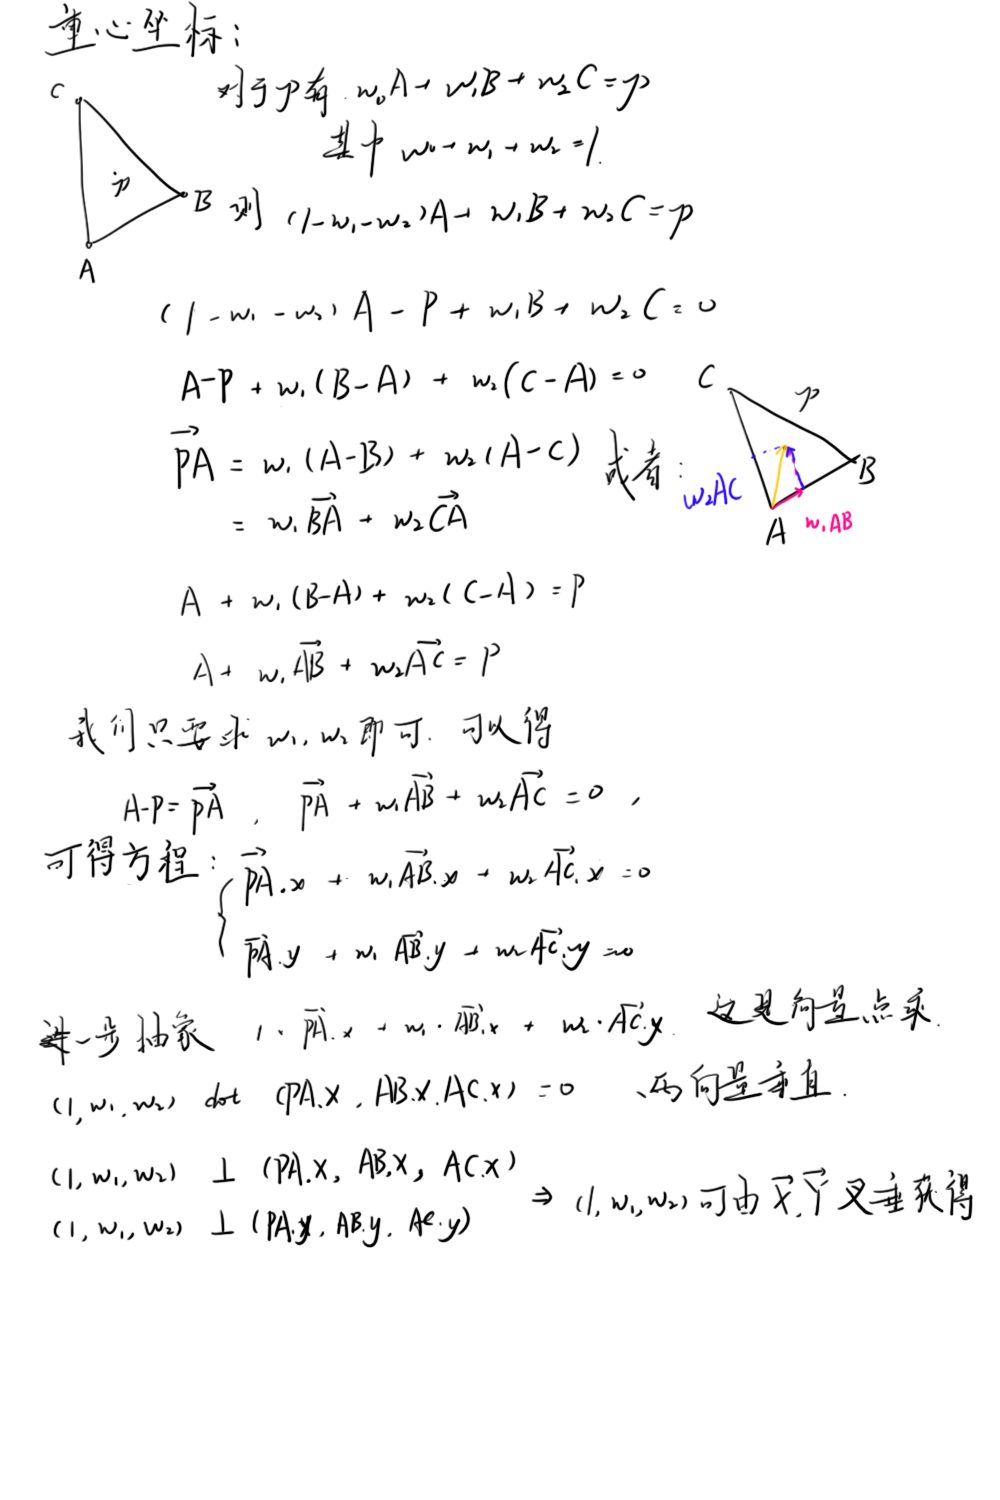 重心坐标:
对于p有 w₀A+w₁B+w₂C=p
其中 w₀+w₁+w₂=1.
C
p
B
A
则 (1-w₁-w₂)A+w₁B+w₂C=p
(1-w₁-w₂)A-P+w₁B+w₂C=0
A-P+w₁(B-A)+w₂(C-A)=0
PA⃗=w₁(A-B)+w₂(A-C) 或者:
=w₁BA⃗+w₂CA⃗
C
p
B
w₂AC
A
w₁AB
A+w₁(B-A)+w₂(C-A)=P
A+w₁AB⃗+w₂AC⃗=P
我们只要求w₁,w₂即可. 可以得
A-P=PA⃗, PA⃗+w₁AB⃗+w₂AC⃗=0,
可得方程: PA⃗.x+w₁AB⃗.x+w₂AC⃗.x=0
PA⃗.y+w₁AB⃗.y+w₂AC⃗.y=0
进一步抽象 1·PA⃗.x+w₁·AB⃗.x+w₂·AC⃗.y. 这是向量点乘.
(1,w₁,w₂) dot (PA.x,AB.x,AC.x)=0 、两向量垂直.
(1,w₁,w₂)⊥(PA.x,AB.x,AC.x)
(1,w₁,w₂)⊥(PA.y,AB.y,AC.y)
⇒(1,w₁,w₂)可由X⃗,Y⃗叉乘获得